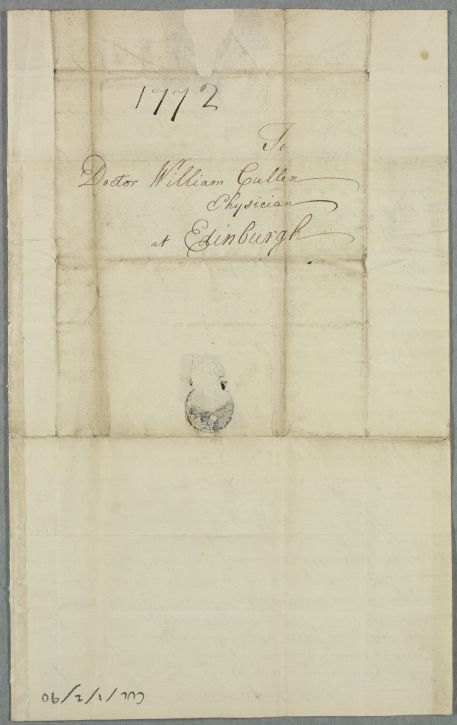 1772
To
Doctor William Cullen
Physician
at Edinburgh
CUL/1/2/90